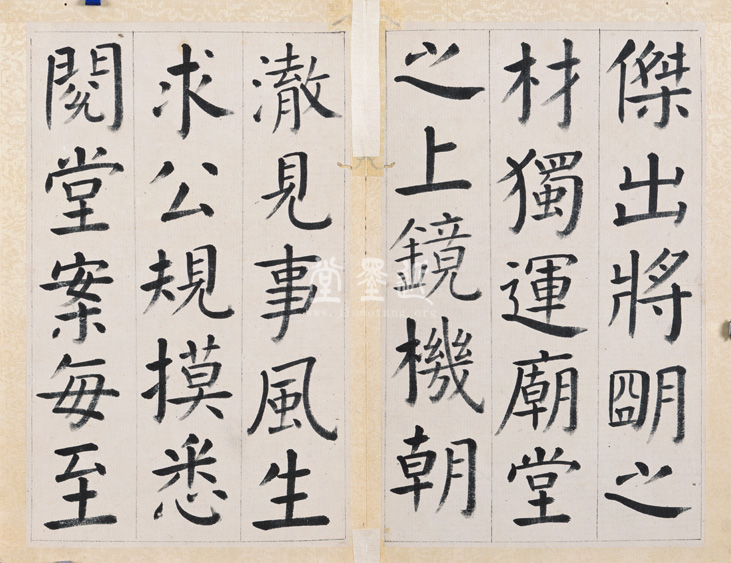 傑出將朙之
材獨運廟堂
之上鏡機朝
澈見事風生
求公規摸悉
閱堂案每至